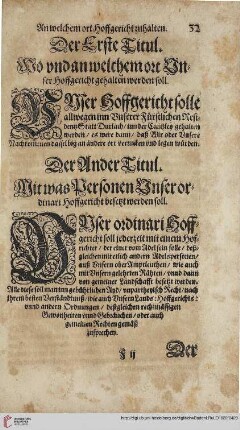 An welchem ort Hoffgericht zuhalten. 32
Der Erste Titul.
Wo vnd an welchem ort Vn-
ser Hoffgericht gehalten werden soll.
VNser Hoffgericht solle
allwegen inn Vnserer Fürstlichen Resi-
dentz Statt Durlach / inn der Cantzley gehalten
werden / es were dann / daß Wir oder Vnsere
Nachkommen dasselbig an andere ort verrucken vnd legen würden.
Der Ander Titul.
Mit was Personen Vnser or-
dinari Hoffgericht besetzt werden soll.
VNser ordinari Hoff-
gericht soll jederzeit mit einem Hof-
richter / der einer vom Adel sein solle / deß-
gleichen mit etlich andern Adelspersonen /
auß Vnsern Ober Amptleuthen / wie auch
mit Vnsern gelehrten Rähten / vnnd dann
von gemeiner Landschafft besetzt werden.
Alle diese sollen inn gerichtlichen Ayd / vnpartheyisch Recht / nach
ihrem besten Verständtnuß / wie auch Vnsern Lands: Hoffgerichts:
vnnd andern Ordnungen / deßgleichen rechtmässigen
Gewonheiten vnnd Gebräuchen / oder auch
gemeinen Rechten gemäß
zusprechen.
F ij Der